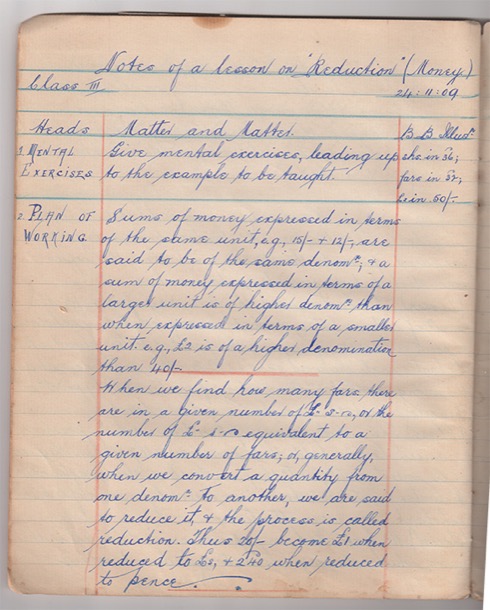 Notes of a lesson on "Reduction" (Money)
Class III
24:11:09
Heads Matter and Matter. B B Illusns
1. MENTAL EXERCISES
Give mental exercises, leading up
to the example to be taught.
shs. in 36;
fars in 3d;
£s in 50/-
2. PLAN OF WORKING
Sums of money expressed in terms
of the same unit, e.g., 15/- + 12/-, are
said to be of the same denomn; & a
sum of money expressed in terms of a
larger unit is of higher denomn than
when expressed in terms of a smaller
unit. e.g., £2 is of a higher denomination
than 40/-
When we find how many fars. there
are in a given number of £-s-d, or the
number of £-s-d equivalent to a
given number of fars; or, generally,
when we convert a quantity from
one denomn to another, we are said
to reduce it, & the process is called
reduction. Thus 20/- become £1 when
reduced to £s, & 240 when reduced
to pence.